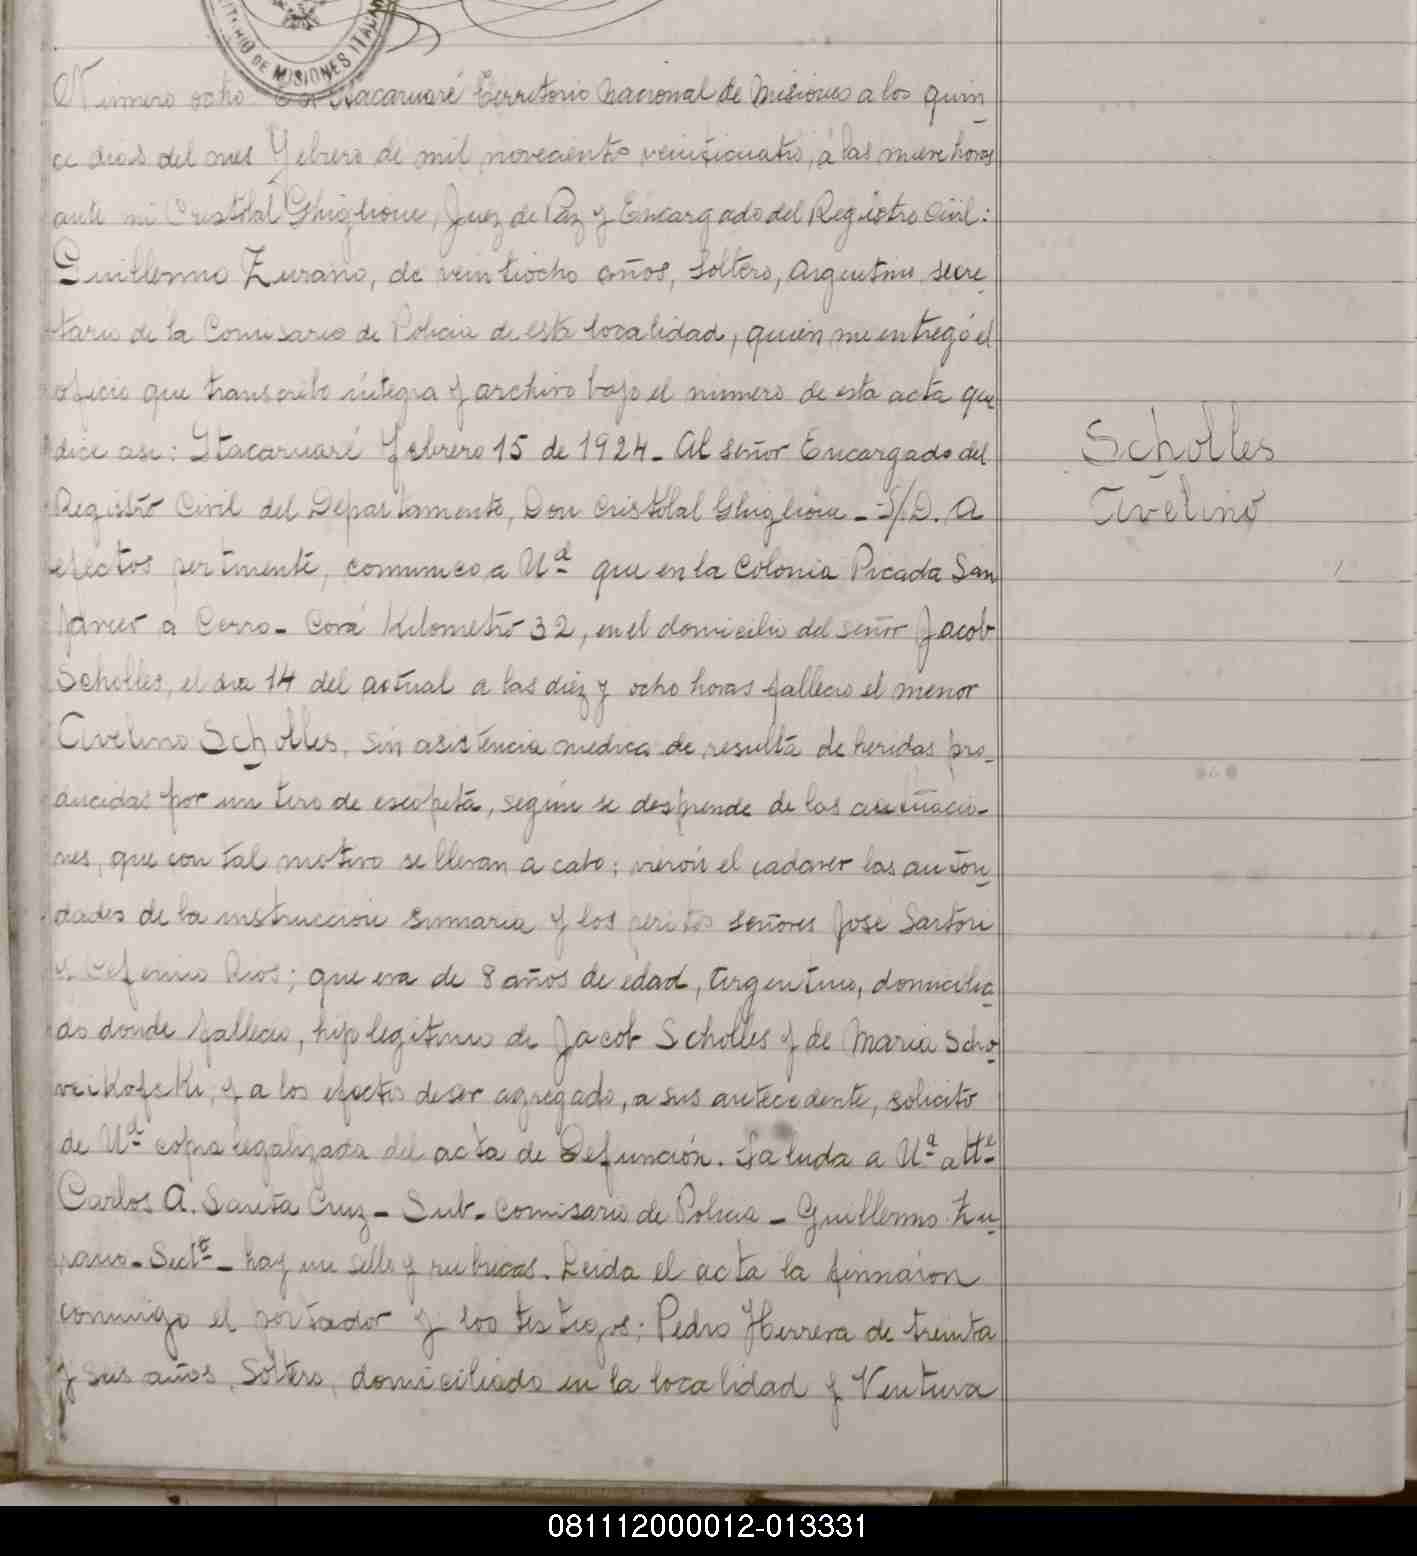 TERRITORIO DE MISIONES ITACAR
Número ocho. En Itacaruaré Territorio Nacional de Misiones a los quin
ce dias del mes Febrero de mil novecientos veinticuatro, á las nueve horas
ante mi Cristobal Ghiglione, Juez de Paz y Encargado del Registro Civil:
Guillermo Zurano, de veintiocho años, soltero, argentino, secre
tario de la Comisaria de Policia de esta localidad, quien me entregó el
oficio que transcribo integra y archivo bajo el número de esta acta que
dice asi: Itacaruaré Febrero 15 de 1924_ Al señor Encargado del
Registro Civil del Departamento, Don Cristobal Ghiglione_ S/D. A
efectos pertinente, comunico a Ud que en la Colonia Picada San
Javier a Cerro_ Corá Kilometro 32, en el domicilio del señor Jacob
Scholles, el dia 14 del actual a las diez y ocho horas fallecio el menor
Avelino Scholles, sin asistencia medica de resulta de heridas pro_
ducidas por un tiro de escopeta, según se desprende de las actuacio_
nes, que con tal motivo se llevan a cabo; vieron el cadaver las autori_
dades de la instrucción sumaria y los peritos señores José Sartori
y Ceferino Rios; que era de 8 años de edad, Argentino, domicilia
do donde fallecio, hijo legitimo de Jacob Scholles y de Maria Scho
veikofski, y a los efectos de ser agregado, a sus antecedente, solicito
de Ud copia legalizada del acta de Defunción. Saluda a Ud atte
Carlos A. Santa Cruz_ Sub_ comisario de Policia_ Guillermo Zu
rano_ Sectº_ hay un sello y rubricas. Leida el acta la firmaron
conmigo el portador y los testigos; Pedro Herrera de treinta
y seis años, soltero, domiciliado en la localidad y Ventura
Scholles
Avelino
081112000012-013331